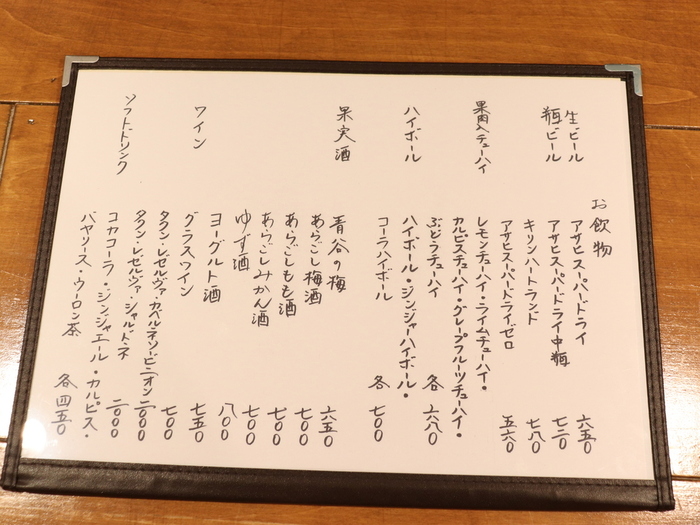 お飲物
生ビール アサヒスーパードライ 六五〇
瓶ビール アサヒスーパードライ中瓶 七二〇
キリンハートランド 七八〇
アサヒスーパードライゼロ 五六〇
果肉入チューハイ レモンチューハイ・ライムチューハイ・
カルピスチューハイ・グレープフルーツチューハイ・
ぶどうチューハイ 各 六八〇
ハイボール ハイボール・ジンジャーハイボール・
コーラハイボール 各 七〇〇
果実酒 青谷の梅 六五〇
あらごし梅酒 七〇〇
あらごしもも酒 七〇〇
あらごしみかん酒 七〇〇
ゆず酒 七〇〇
ヨーグルト酒 八〇〇
ワイン グラスワイン 七五〇
タラン・レゼルヴァ・カベルネソービニオン 二〇〇〇
タラン・レゼルヴァ・シャルドネ 二〇〇〇
ソフトドリンク コカコーラ・ジンジャエール・カルピス・
バヤリース・ウーロン茶 各 四五〇